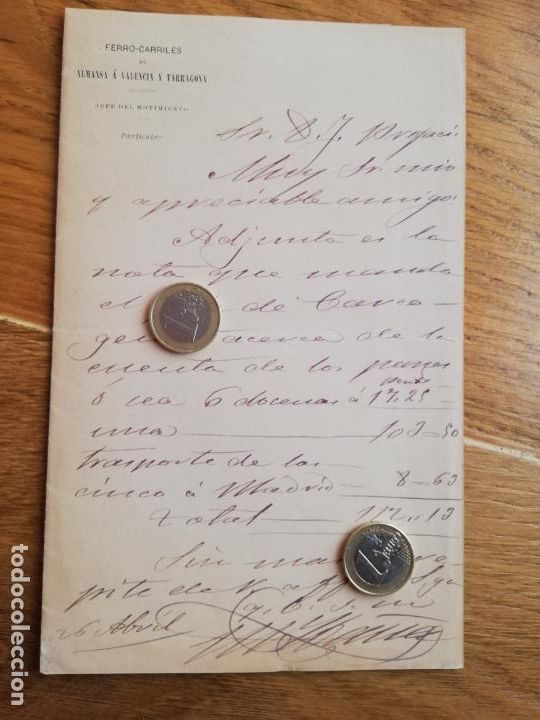 FERRO-CARRILES
DE
ALMANSA Á VALENCIA Y TARRAGONA
JEFE DEL MOVIMIENTO
Particular
Sr. D. J.
Muy Sr. mio
y apreciable amigo:
Adjunta es la
nota que manda
el de Carca-
gente acerca de la
cuenta de los
ó sea 6 docenas á 17,25
una 103-50
trasporte de las
cinco á Madrid 8-63
total 112,,13
Sin mas
pite de V.
q. b. s. m
26 Abril
1 EURO
todocoleccion